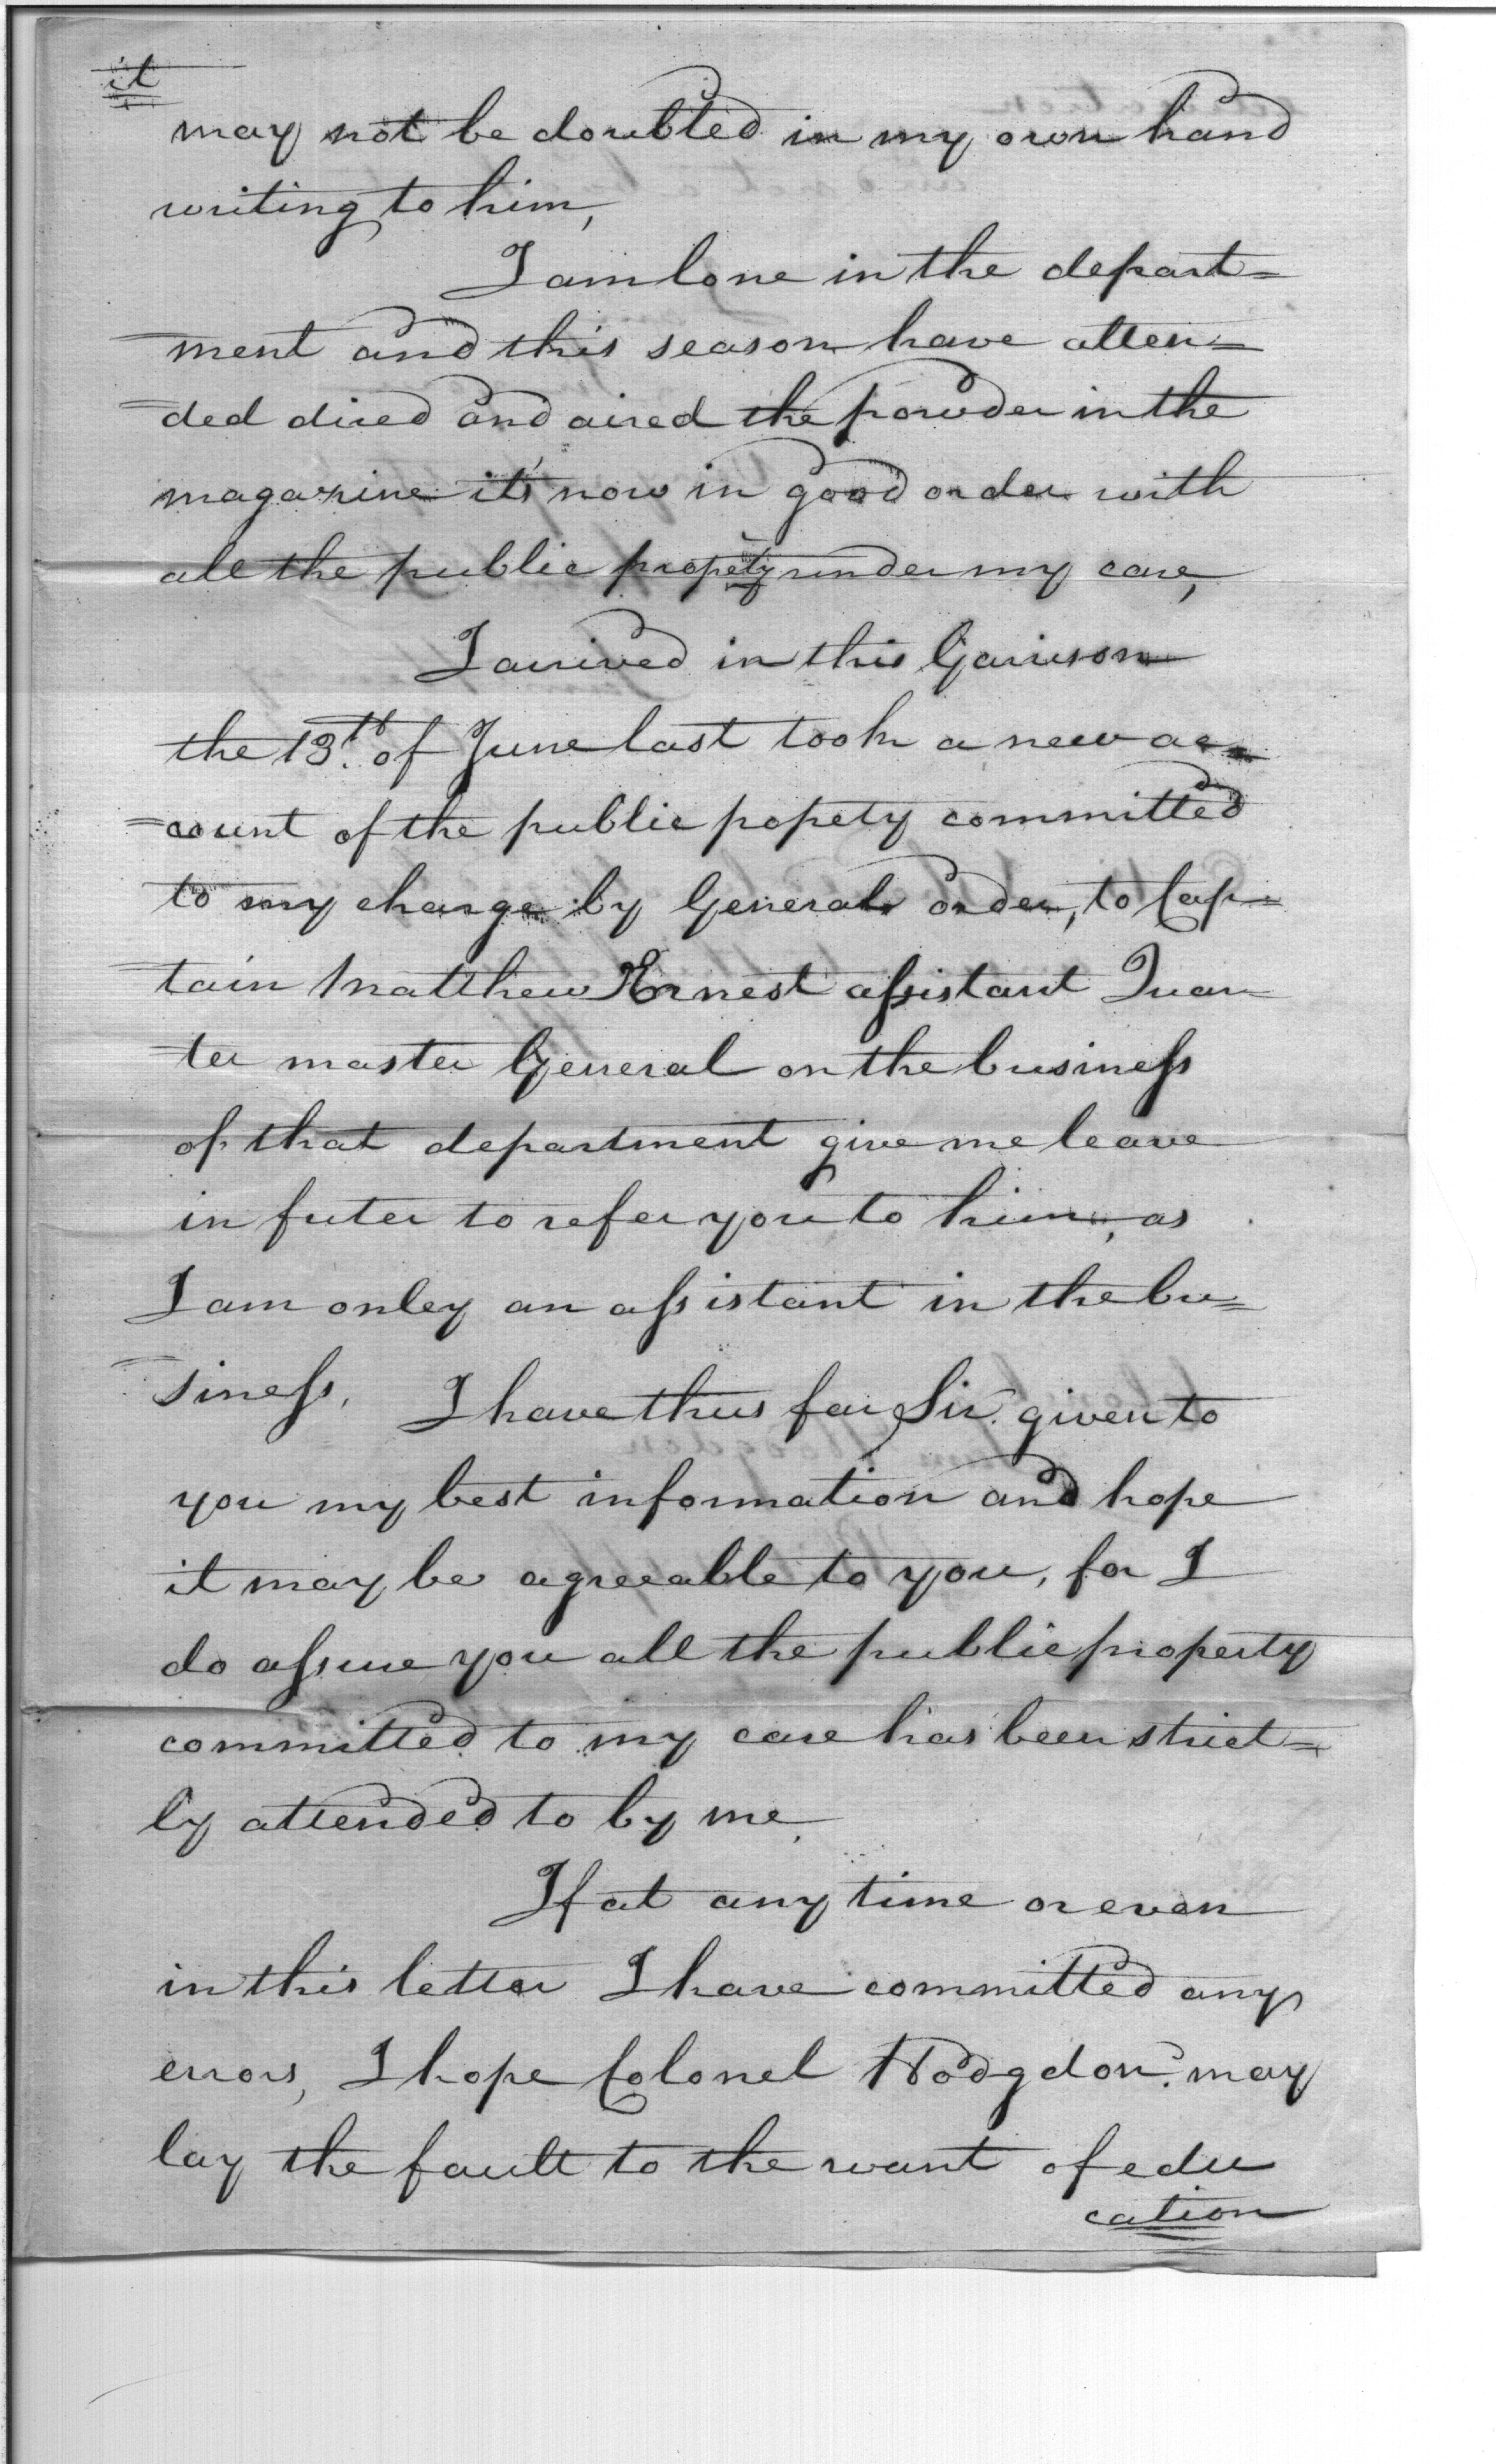 it
may not be doubted in my own hand
writing to him,
I am lone in the depart=
=ment and this season have atten=
=ded dired and aired the powder in the
magazine it's now in good order with
all the public propety under my care,
I arrived in this Garrison
the 13.th of June last took a new ac=
=count of the public popety committed
to my charge by General order, to Cap=
=tain Matthew Ernest assistant Quar
=ter master General on the business
of that department give me leave
in futer to refer you to him, as
I am onley an assistant in the bu=
=siness. I have thus far Sir. given to
you my best information and hope
it may be agreeable to you, for I
do assure you all the public property
committed to my care has been strict=
ly attended to by me.
If at any time or even
in this letter I have committed any
errors, I hope Colonel Hodgdon. may
lay the fault to the want of edu
cation